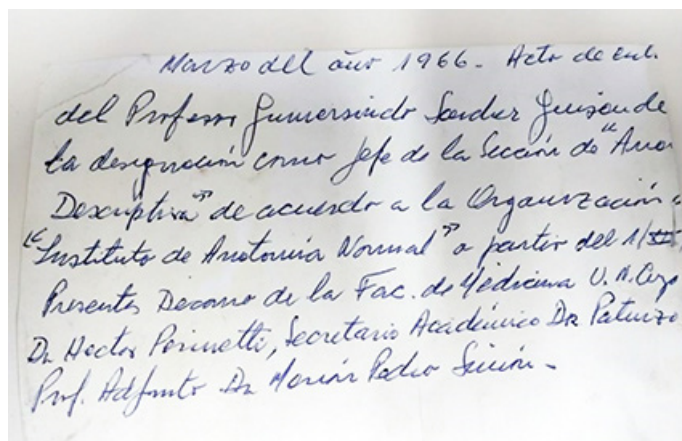 Marzo del año 1966 - Acto de
del Profesor Gumersindo Sanchez Guisande
la designación como Jefe de la Sección de "
Descriptiva" de acuerdo a la Organización
"Instituto de Anatomia Normal" a partir del 1/
Presentes Decano de la Fac. de Medicina U. N. Cuyo
Dr Hector Perinetti, Secretario Académico Dr
Prof. Adjunto Dr Pedro